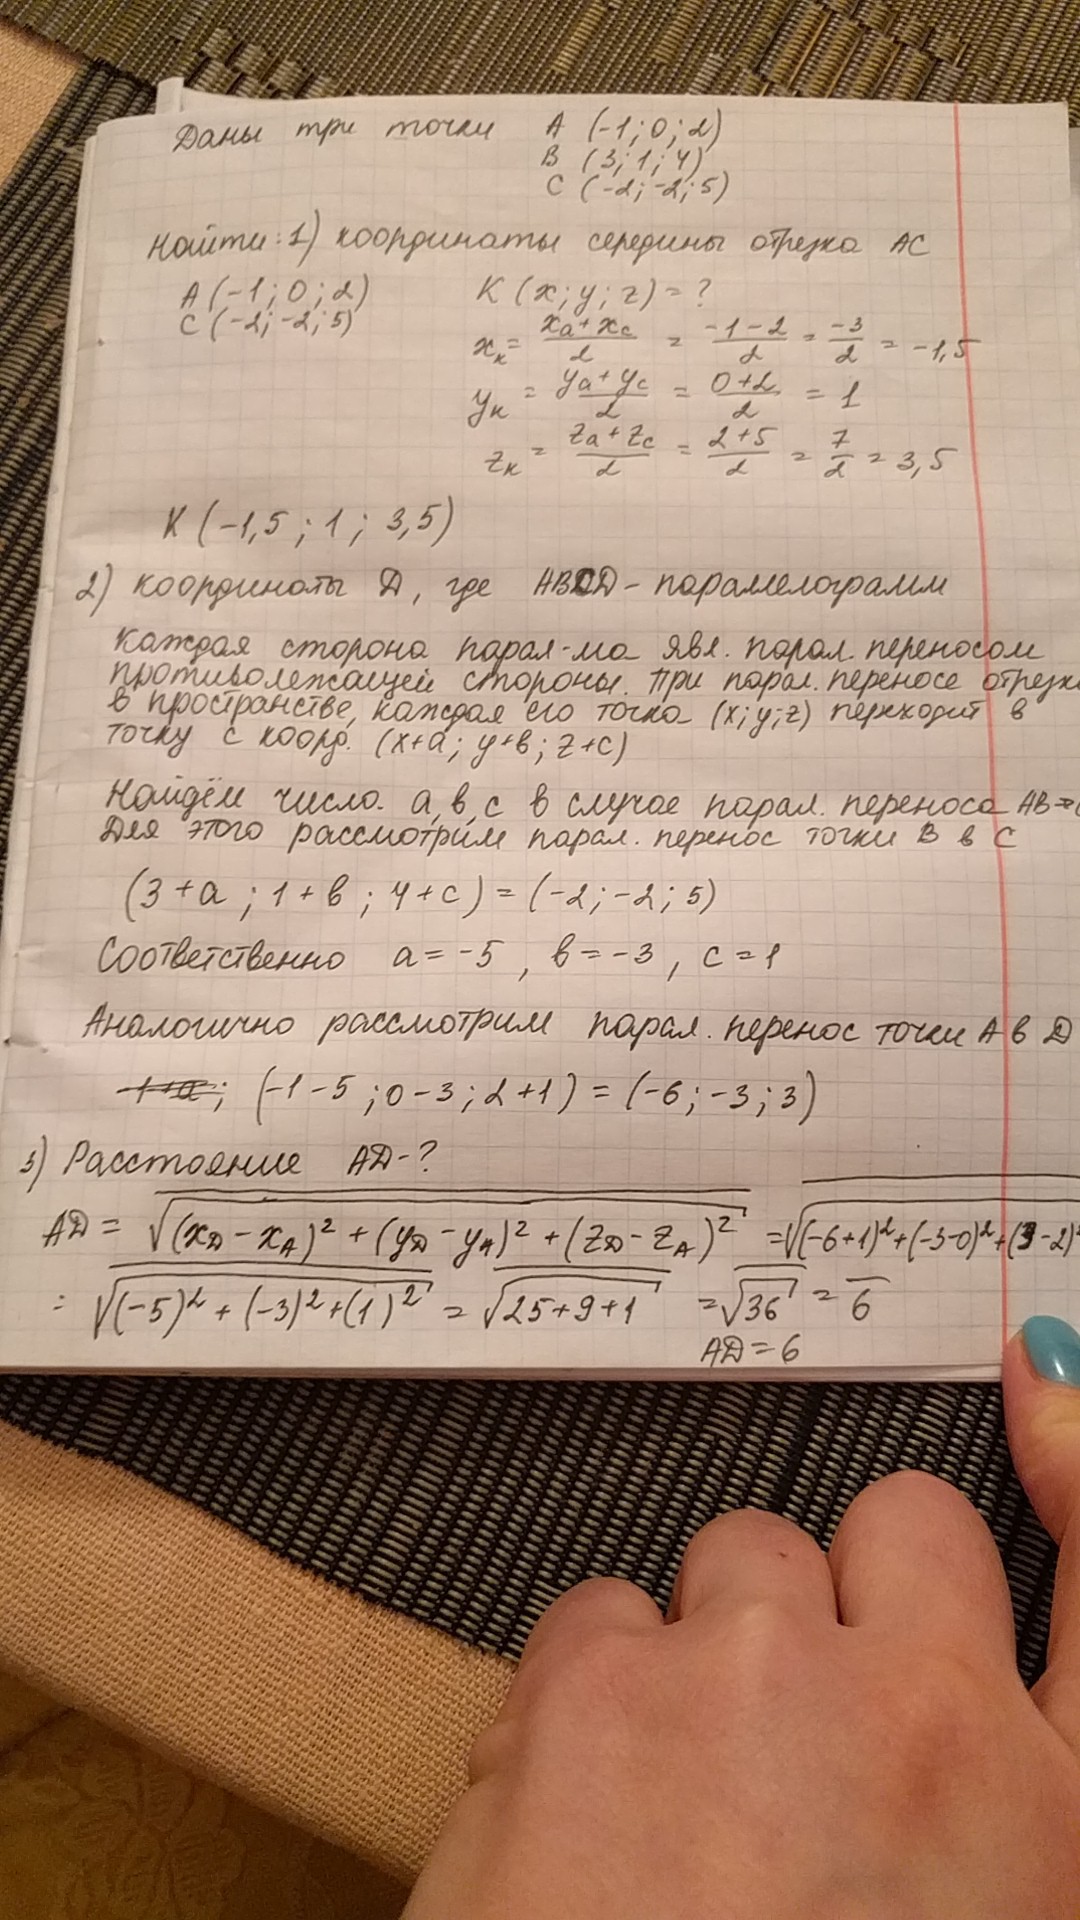 Даны три точки А (-1; 0; 2)
В (3; 1; 4)
С (-2; -2; 5)
Найти: 1) координаты середины отрезка АС
А (-1; 0; 2) К (x; y; z) = ?
С (-2; -2; 5)
xₖ = (xₐ + x꜀)/2 = (-1-2)/2 = -3/2 = -1,5
yₖ = (yₐ + y꜀)/2 = (0+2)/2 = 1
zₖ = (zₐ + z꜀)/2 = (2+5)/2 = 7/2 = 3,5
К (-1,5 ; 1 ; 3,5)
2) координаты D, где ABCD - параллелограмм
Каждая сторона парал-ма явл. парал. переносом
противолежащей стороны. При парал. переносе отрезка
в пространстве, каждая его точка (x; y; z) переходит в
точку с коорд. (x+a; y+в; z+c)
Найдём число. a, в, c в случае парал. переноса АВ
Для этого рассмотрим парал. перенос точки В в С
(3+a ; 1+в ; 4+c) = (-2; -2; 5)
Соответственно a = -5 , в = -3 , c = 1
Аналогично рассмотрим парал. перенос точки А в D
-1+a; (-1-5 ; 0-3 ; 2+1) = (-6; -3; 3)
3) Расстояние AD - ?
AD = √((x_D - x_A)² + (y_D - y_A)² + (z_D - z_A)²) = √((-6+1)² + (-3-0)² + (3-2)²
= √((-5)² + (-3)² + (1)²) = √(25+9+1) = √36 = 6
AD = 6